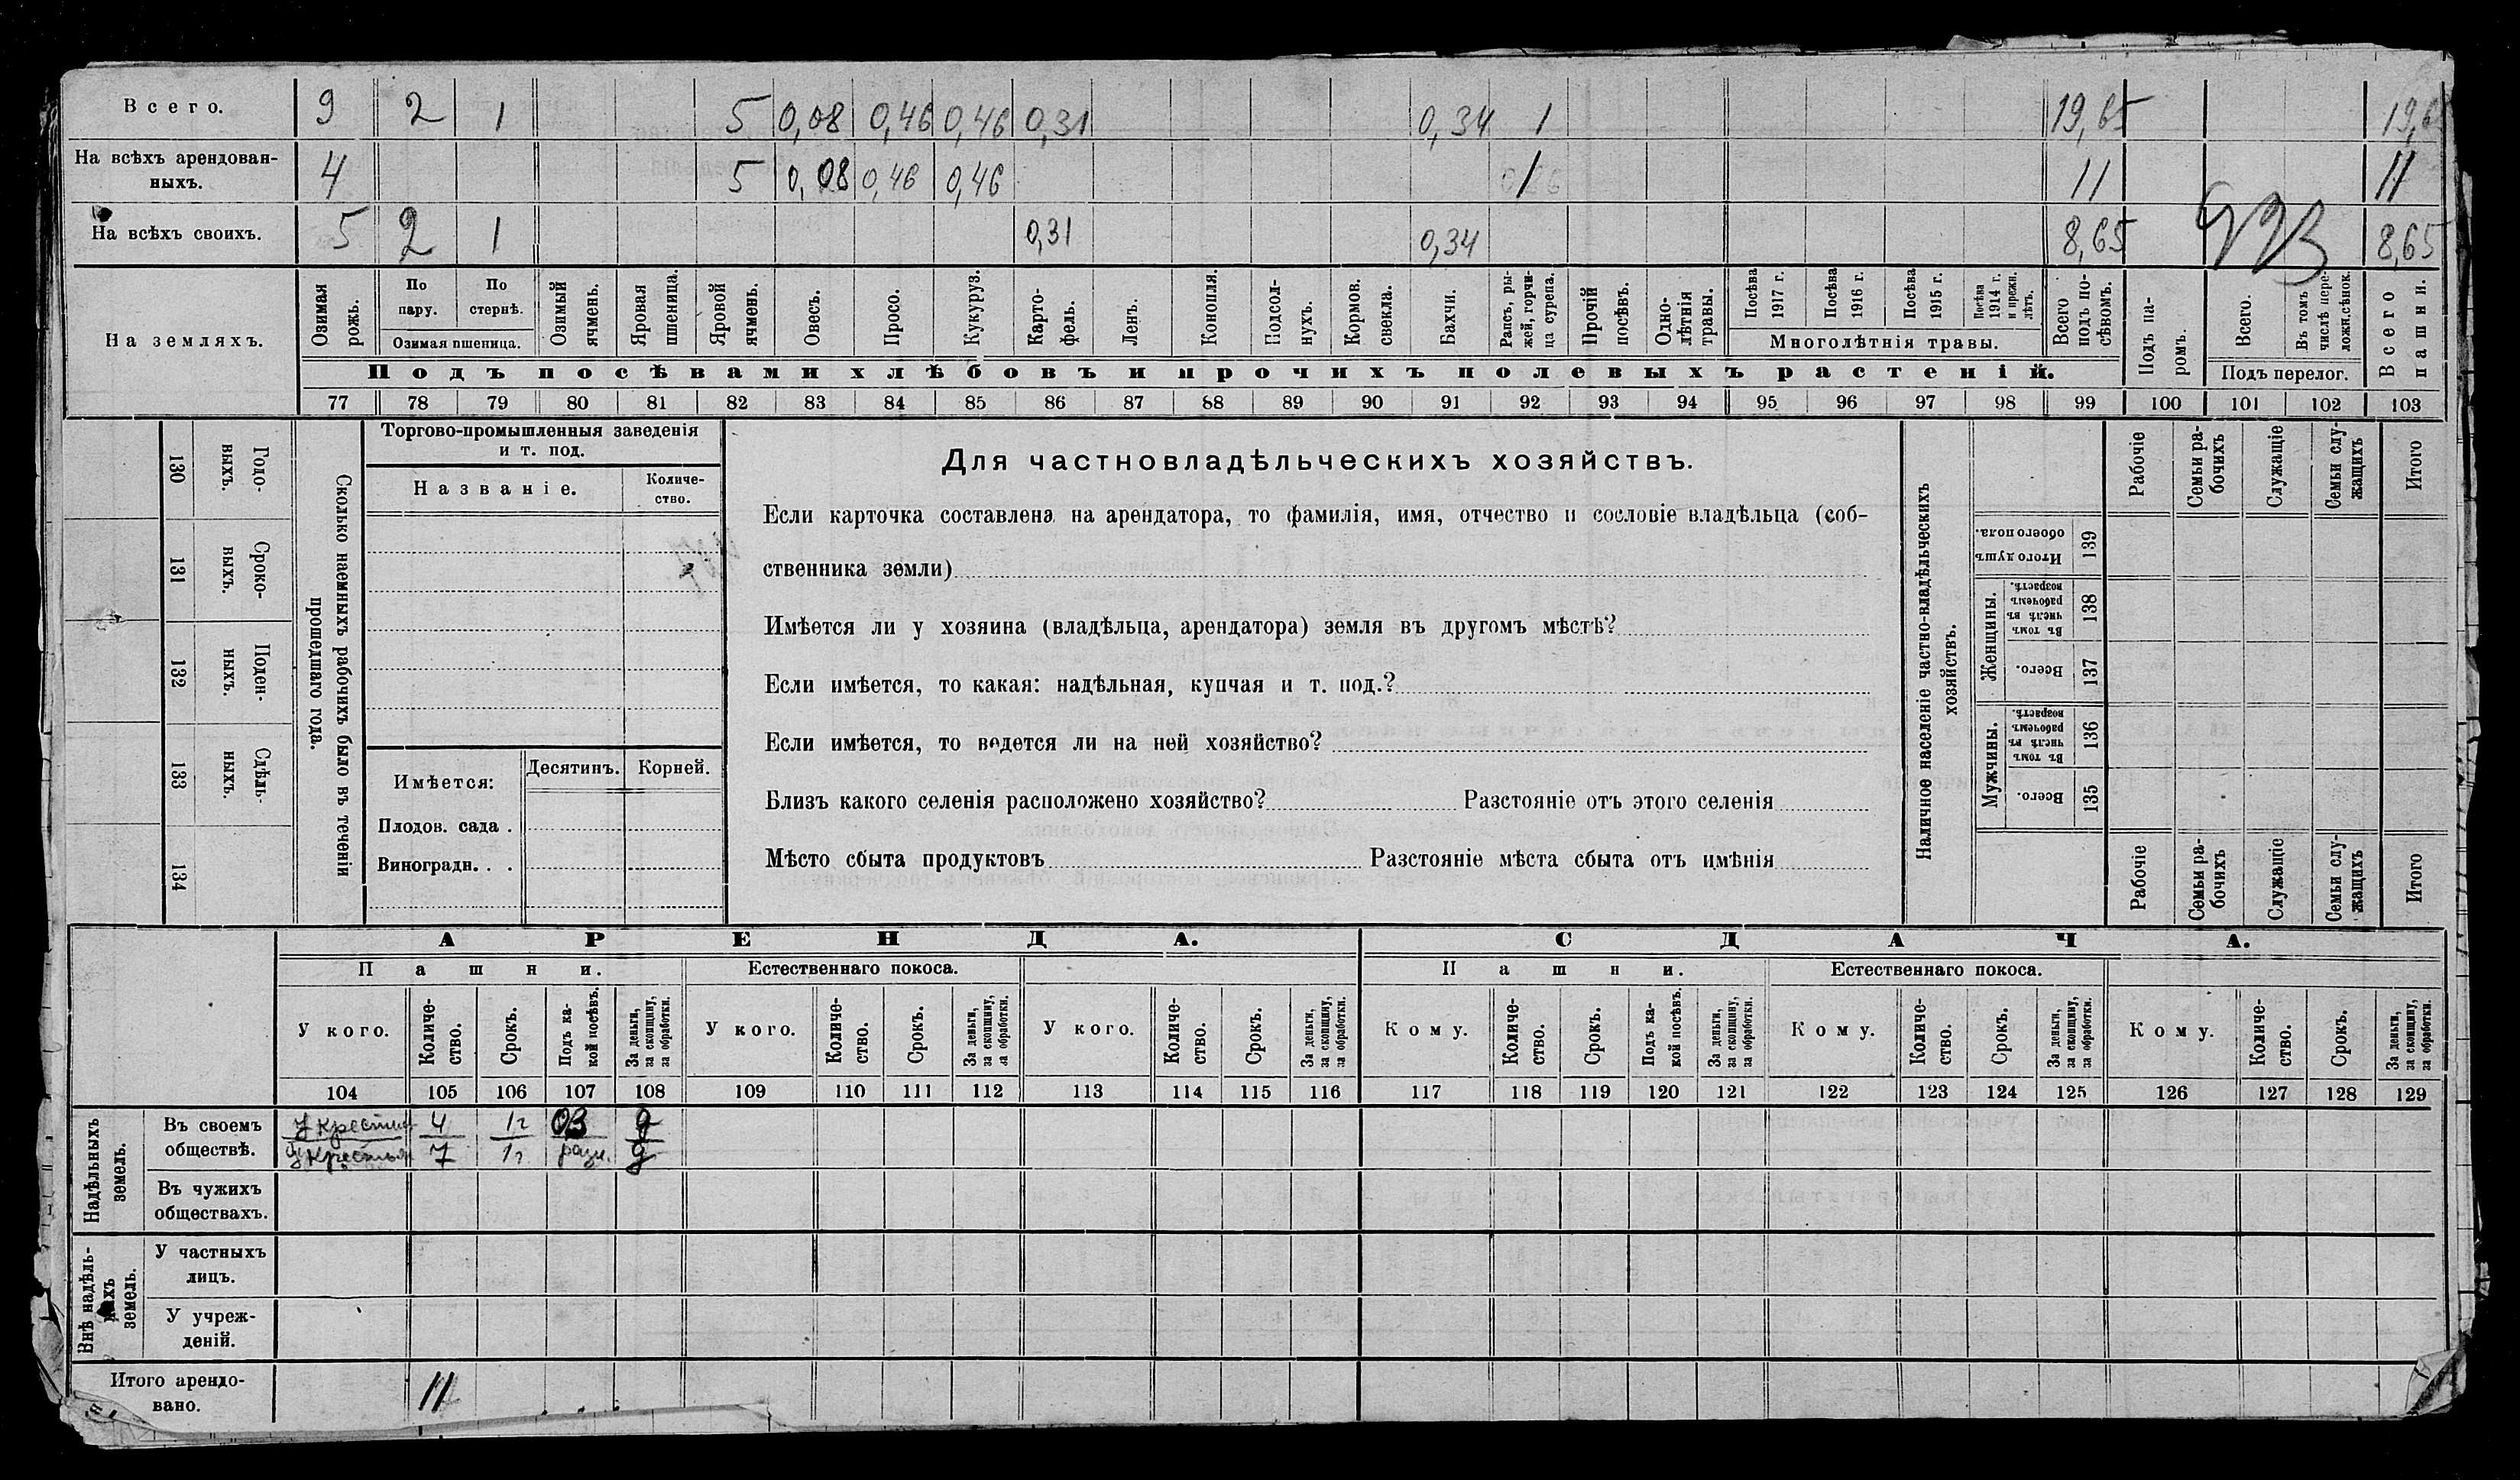 Всего. 9 2 1 5 0,08 0,46 0,46 0,31 0,34 1 19,65
На всѣхъ арендован-
ныхъ. 4 5 0,08 0,46 0,46 1 11 11
На всѣхъ своихъ. 5 2 1 0,31 0,34 8,65 8,65
На земляхъ.
Озимая рожь.
По пару.
По стернѣ.
Озимая пшеница.
Озимый ячмень.
Яровая пшеница.
Яровой ячмень.
Овесъ.
Просо.
Кукуруз.
Карто-
фель.
Ленъ.
Конопля.
Подсол-
нухъ.
Кормов. свекла.
Бахчи.
Рапсъ, ры-
жей, горчи-
ца сурепа.
Прочій посѣвъ.
Одно-
лѣтнія травы.
Посѣва 1917 г.
Посѣва 1916 г.
Посѣва 1915 г.
Посѣва 1914 г. и прежн. лѣтъ.
Многолѣтнія травы.
Всего подъ по-
сѣвомъ.
Подъ па-
ромъ.
Всего.
Въ томъ числѣ пере-
ложн. сѣнок.
Подъ перелог.
Всего пашни.
Подъ посѣвами хлѣбовъ и прочихъ полевыхъ растеній.
77 78 79 80 81 82 83 84 85 86 87 88 89 90 91 92 93 94 95 96 97 98 99 100 101 102 103
130 Годо-
выхъ.
131 Сроко-
выхъ.
132 Поден-
ныхъ.
133 Сдѣль-
ныхъ.
134
Сколько наемныхъ рабочихъ было въ теченіи
прошедшаго года.
Торгово-промышленныя заведенія
и т. под.
Названіе.
Количе-
ство.
Имѣется:
Десятинъ. Корней.
Плодов. сада .
Виноградн. . .
Для частновладѣльческихъ хозяйствъ.
Если карточка составлена на арендатора, то фамилія, имя, отчество и сословіе владѣльца (соб-
ственника земли)
Имѣется ли у хозяина (владѣльца, арендатора) земля въ другомъ мѣстѣ?
Если имѣется, то какая: надѣльная, купчая и т. под.?
Если имѣется, то ведется ли на ней хозяйство?
Близъ какого селенія расположено хозяйство? Разстояніе отъ этого селенія
Мѣсто сбыта продуктовъ Разстояніе мѣста сбыта отъ имѣнія
Наличное населеніе частно-владѣльческихъ
хозяйствъ.
Рабочіе
Семьи ра-
бочихъ
Служащіе
Семьи слу-
жащихъ
Итого
Итого душъ обоего пола. 139
Женщины.
Въ томъ числѣ въ рабочемъ возрастѣ. 138
Всего. 137
Мужчины.
Въ томъ числѣ въ рабочемъ возрастѣ. 136
Всего. 135
Рабочіе
Семьи ра-
бочихъ
Служащіе
Семьи слу-
жащихъ
Итого
АРЕНДА. СДАЧА.
Пашни. Естественнаго покоса. Пашни. Естественнаго покоса.
У кого.
Количе-
ство.
Срокъ.
Подъ ка-
кой посѣвъ.
За деньги, за скопщину, за обработки.
У кого.
Количе-
ство.
Срокъ.
За деньги, за скопщину, за обработки.
У кого.
Количе-
ство.
Срокъ.
За деньги, за скопщину, за обработки.
Кому.
Количе-
ство.
Срокъ.
Подъ ка-
кой посѣвъ.
За деньги, за скопщину, за обработки.
Кому.
Количе-
ство.
Срокъ.
За деньги, за скопщину, за обработки.
Кому.
Количе-
ство.
Срокъ.
За деньги, за скопщину, за обработки.
104 105 106 107 108 109 110 111 112 113 114 115 116 117 118 119 120 121 122 123 124 125 126 127 128 129
Надѣльныхъ земель.
Въ своемъ
обществѣ.
4 1г ОЗ д
7 1г д
Въ чужихъ
обществахъ.
Внѣ надѣль-
ныхъ земель.
У частныхъ
лицъ.
У учреж-
деній.
Итого арендо-
вано. 11